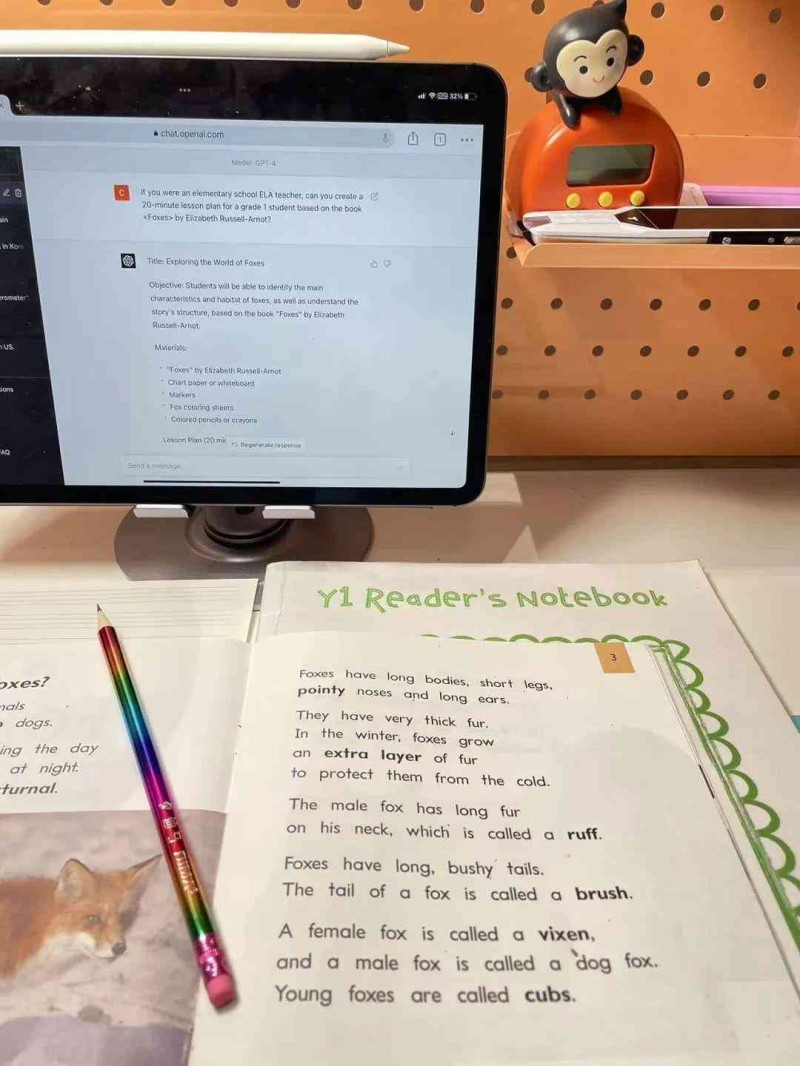 32%
chat.openai.com
1
Model: GPT-4
C
If you were an elementary school ELA teacher, can you create a
20-minute lesson plan for a grade 1 student based on the book
<Foxes> by Elizabeth Russell-Arnot?
Title: Exploring the World of Foxes
Objective: Students will be able to identify the main
characteristics and habitat of foxes, as well as understand the
story's structure, based on the book "Foxes" by Elizabeth
Russell-Arnot.
Materials:
"Foxes" by Elizabeth Russell-Arnot
Chart paper or whiteboard
Markers
Fox coloring sheets
Colored pencils or crayons
Lesson Plan (20 mi
Regenerate response
Send a message
in Kore
erometer".
US.
FAQ
Y1 Reader's Notebook
3
Foxes have long bodies, short legs,
pointy noses and long ears.
They have very thick fur.
In the winter, foxes grow
an extra layer of fur
to protect them from the cold.
The male fox has long fur
on his neck, which is called a ruff.
Foxes have long, bushy tails.
The tail of a fox is called a brush.
A female fox is called a vixen,
and a male fox is called a dog fox.
Young foxes are called cubs.
oxes?
mals
dogs.
ing the day
at night.
cturnal.